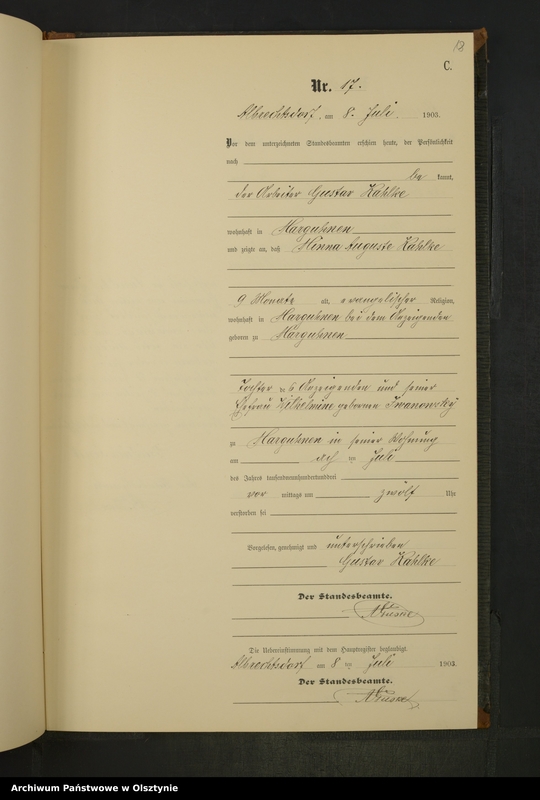 13
C.
Nr. 17.
Albrechtsdorf, am 8. Juli 1903.
Vor dem unterzeichneten Standesbeamten erschien heute, der Persönlichkeit
nach
be kannt,
der Arbeiter Gustav Kahlke
wohnhaft in Marguhnen
und zeigte an, daß Minna Auguste Kahlke
9 Monate alt, evangelischer Religion,
wohnhaft in Marguhnen bei dem Anzeigenden
geboren zu Marguhnen
Tochter des Anzeigenden und seiner
Ehefrau Wilhelmine geborenen Iwanowsky
zu Marguhnen in seiner Wohnung
am ten Juli
des Jahres tausendneunhundertunddrei
vor mittags um zwölf Uhr
verstorben sei
Vorgelesen, genehmigt und unterschrieben
Gustav Kahlke
Der Standesbeamte.
Die Uebereinstimmung mit dem Hauptregister beglaubigt.
Albrechtsdorf am 8 ten Juli 1903.
Der Standesbeamte.
Archiwum Państwowe w Olsztynie